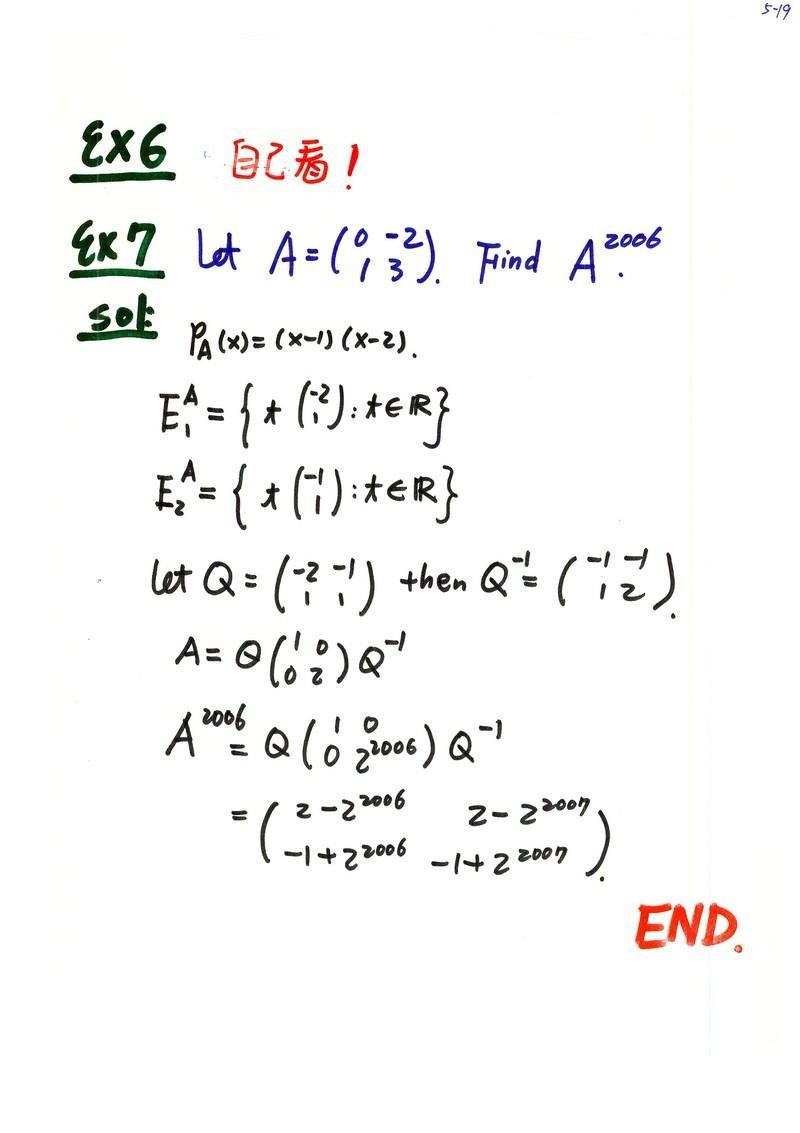 5-19
Ex6 自己看!
Ex7 Let A = (0 -2; 1 3). Find A^2006.
sol:
P_A(x) = (x-1)(x-2).
E_1^A = { t (-2; 1) : t ∈ ℝ }
E_2^A = { t (-1; 1) : t ∈ ℝ }
let Q = (-2 -1; 1 1) then Q^-1 = (-1 -1; 1 2).
A = Q (1 0; 0 2) Q^-1
A^2006 = Q (1 0; 0 2^2006) Q^-1
= (2-2^2006 2-2^2007; -1+2^2006 -1+2^2007).
END.